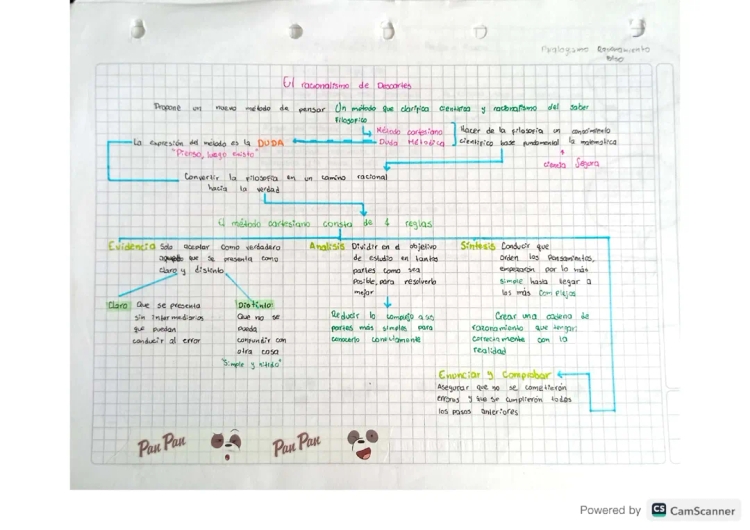 Razonamiento
El racionalismo de Descartes
Propone un nuevo método de pensar Un método que clarifica cientifica y racionalismo del saber
filosofico
Método cartesiano
Duda Metodica
Hacer de la filosofia un conocimiento
cientifico base fundamental la matematica
ciencia Segura
La expresión del metodo es la DUDA
"Pienso, luego existo"
Convertir la filosofia en un camino racional
hacia la verdad
El método cartesiano consta de 4 reglas
Evidencia Solo aceptar como verdadero
aquello que se presenta como
claro y distinto
Claro Que se presenta
sin intermediarios
que puedan
conducir al error
Distinto
Que no se
pueda
confundir con
otra cosa
"simple y nitido"
Analisis Dividir en el objetivo
de estudio en tantas
partes como sea
posible, para resolverlo
mejor
Reducir lo complejo a sus
partes más simples para
conocerlo
Sintesis Conducir que
orden los Pensamientos,
empezarón por lo más
simple hasta llegar a
los más complejos
Crear una cadena de
razonamiento que tengan
correctamente con la
realidad
Enunciar y Comprobar
Asegurar que no se cometierón
errores y que se cumplierón todos
los pasos anteriores
Pan Pan
Pan Pan
Powered by CS CamScanner